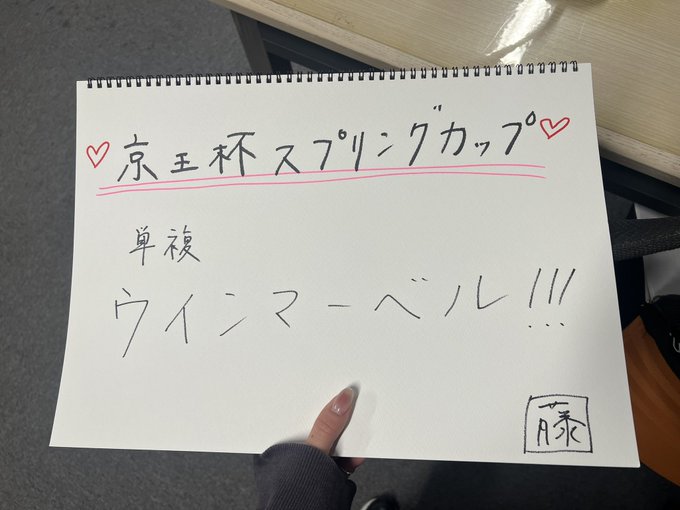 ♡京王杯スプリングカップ♡
単複
ウインマーベル!!!
藤